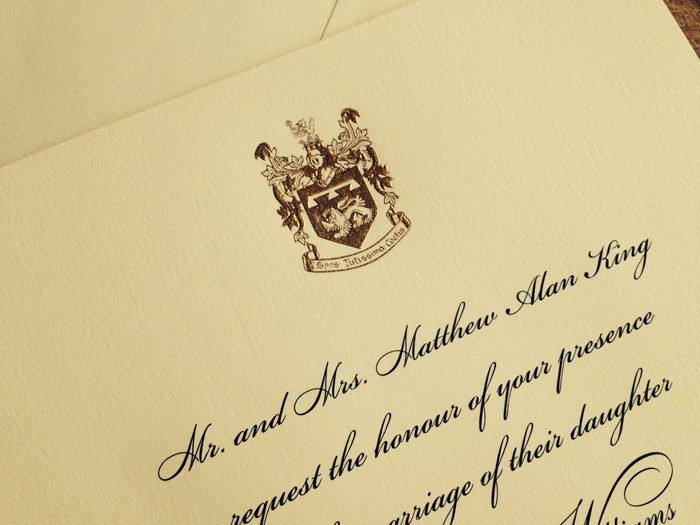 Spes Tutissima Coelis
Mr. and Mrs. Matthew Alan King
request the honour of your presence
marriage of their daughter
Williams